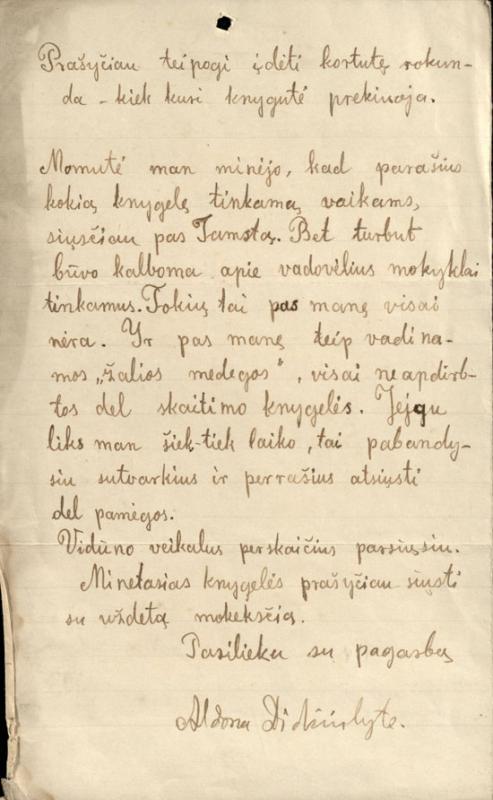 Prašyčiau teipogi įdėti kortutę rokun-
da - kiek kuri knygutė prekiuoja.
Momutė man minėjo, kad parašius
kokią knygelę tinkamą vaikams,
siųsčiau pas Tamstą. Bet turbut
būvo kalboma apie vadovėlius mokyklai
tinkamus. Tokių tai pas manę visai
nėra. Yr pas manę teip vadina-
mos „žalios medegos", visai neapdirb-
tos del skaitimo knygelės. Jejgu
liks man šiek-tiek laiko, tai pabandy-
siu sutvarkius ir perrašius atsiųsti
del pamėgos.
Vidūno veikalus perskaičius parsiųsiu.
Minetasias knygelės prašyčiau siųsti
su uždetą mokeksčią.
Pasilieku su pagarbą
Aldona